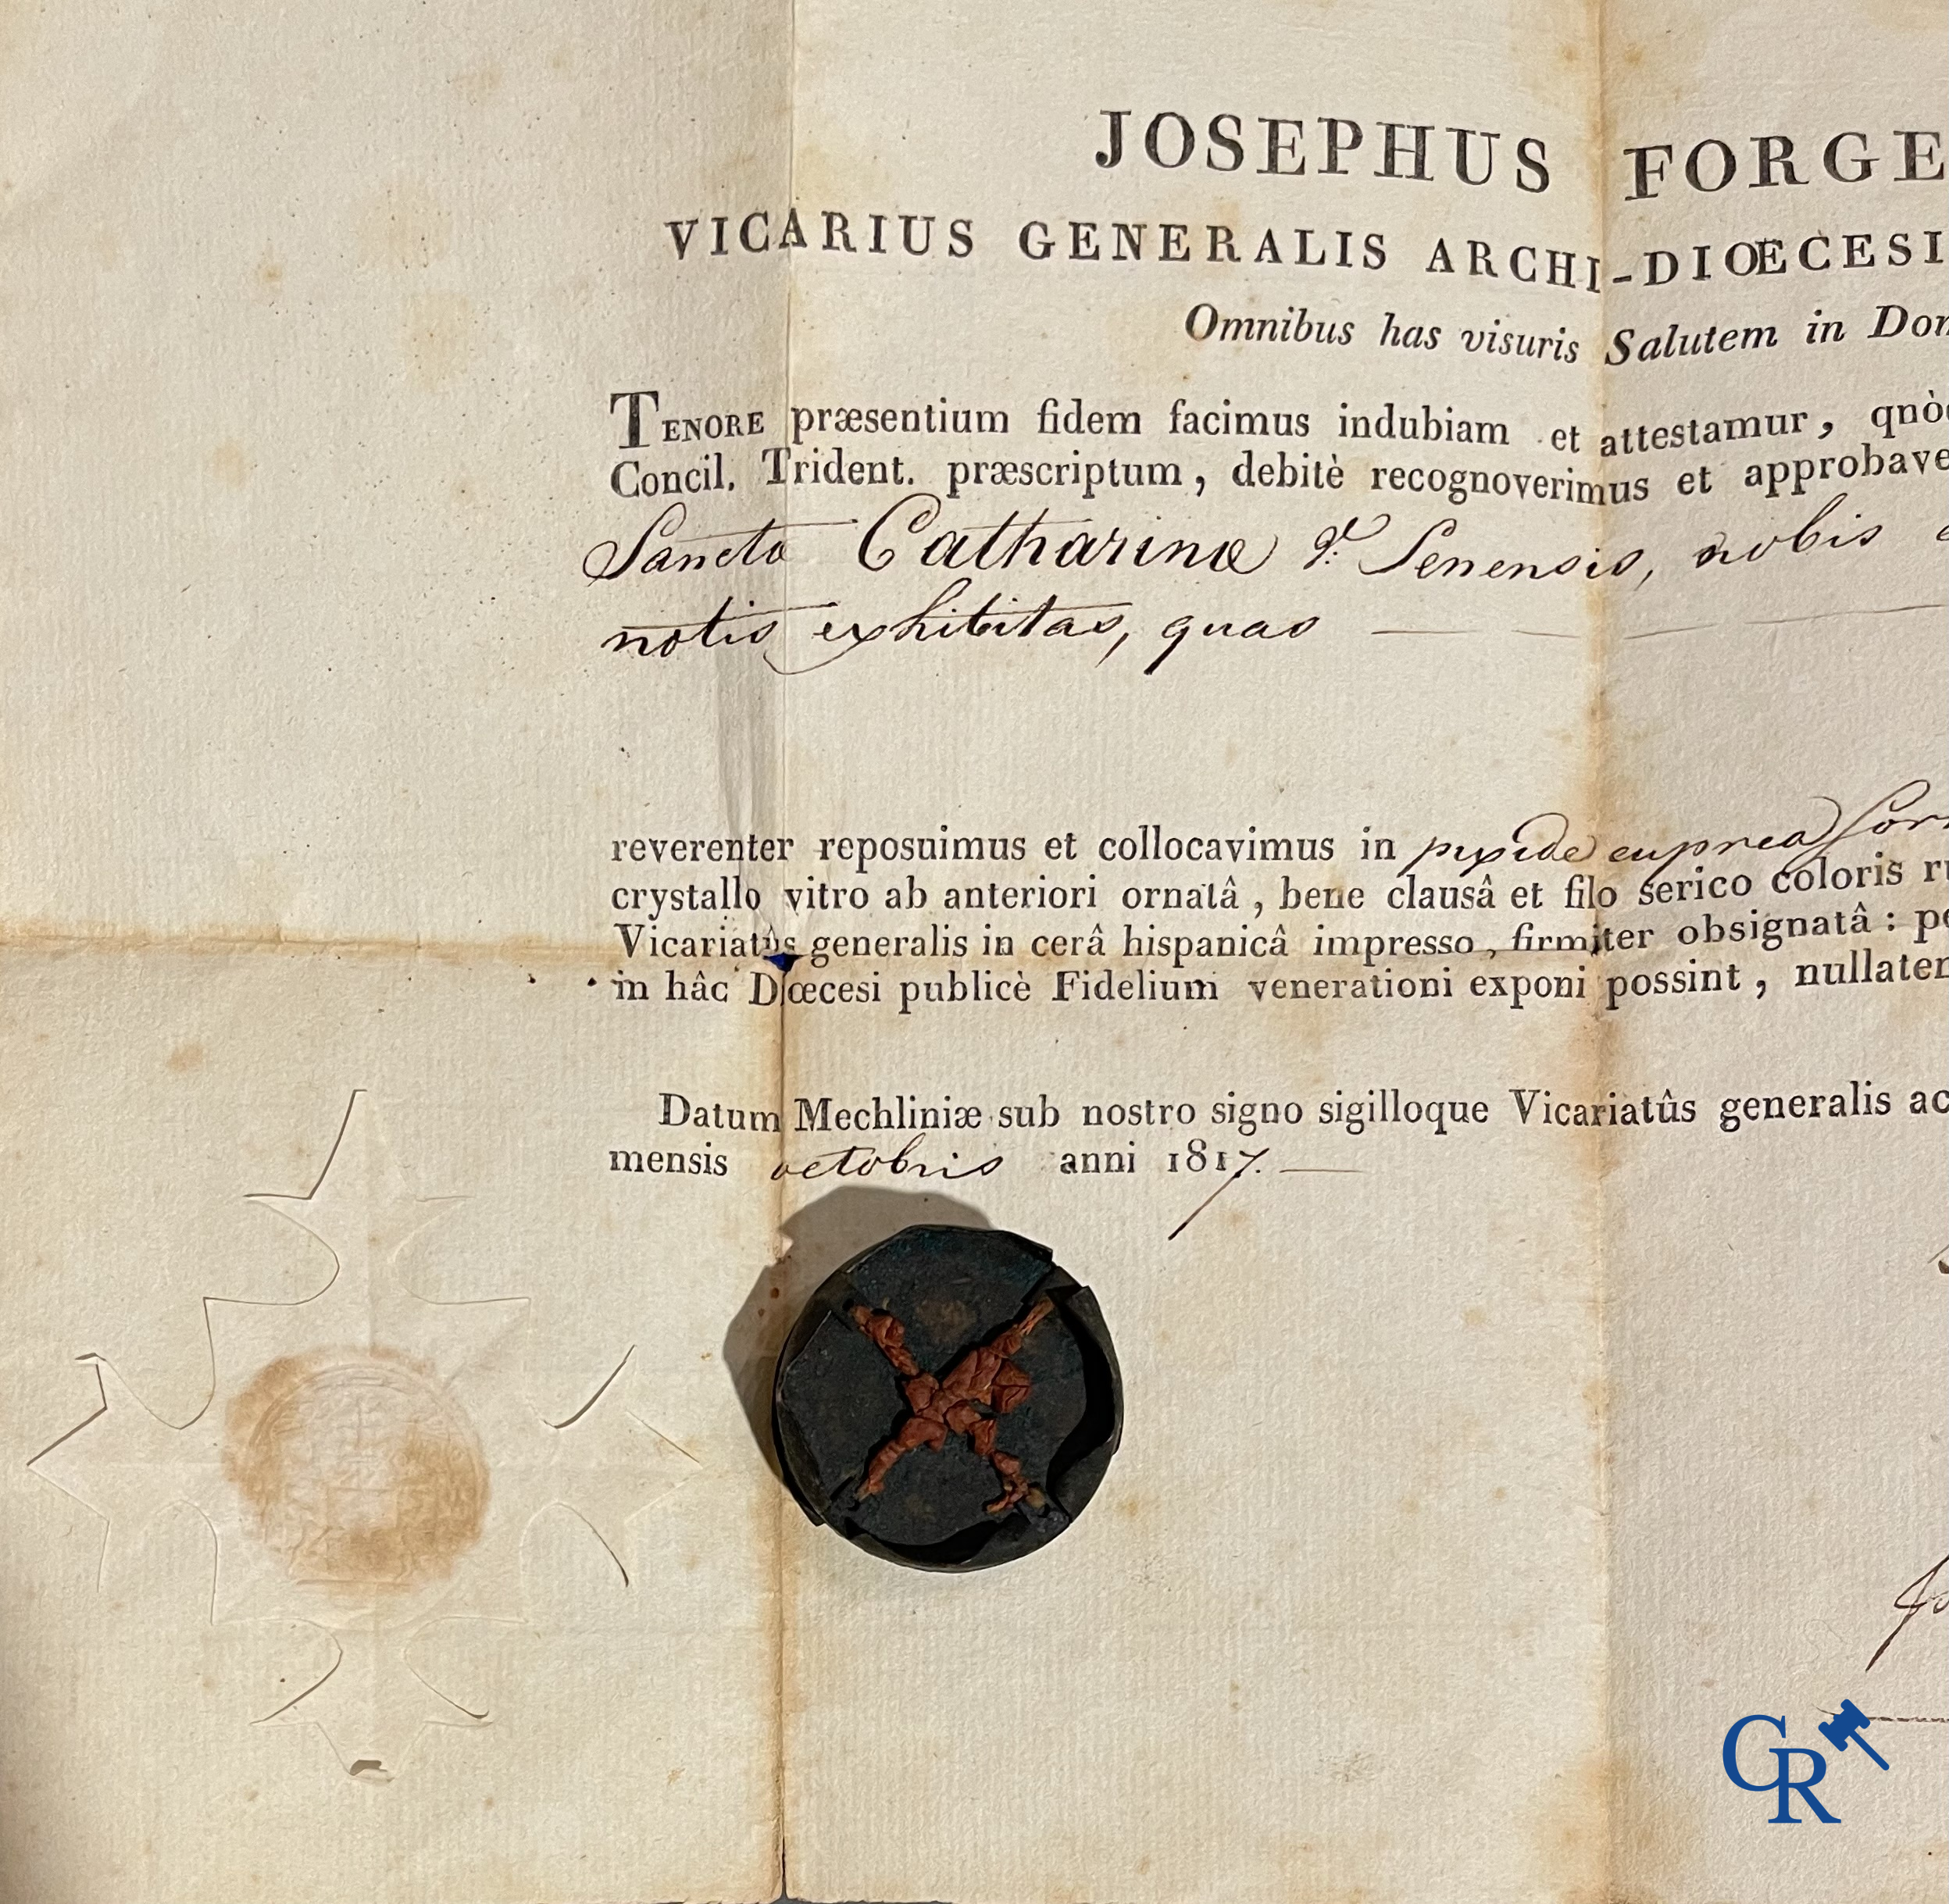 JOSEPHUS FORGE
VICARIUS GENERALIS ARCHI-DIŒCESI
Omnibus has visuris Salutem in Dom
TENORE præsentium fidem facimus indubiam et attestamur, qnòd
Concil. Trident. præscriptum, debitè recognoverimus et approbave
Sanctæ Catharinæ Senensis, nobis
notis exhibitas, quas
reverenter reposuimus et collocavimus in pyxide cuprea for
crystallo vitro ab anteriori ornatâ, bene clausâ et filo serico coloris ru
Vicariatûs generalis in cerâ hispanicâ impresso, firmiter obsignatâ : pe
in hâc Diœcesi publicè Fidelium venerationi exponi possint, nullaten
Datum Mechliniæ sub nostro signo sigilloque Vicariatûs generalis ac
mensis octobris anni 1817.
CR